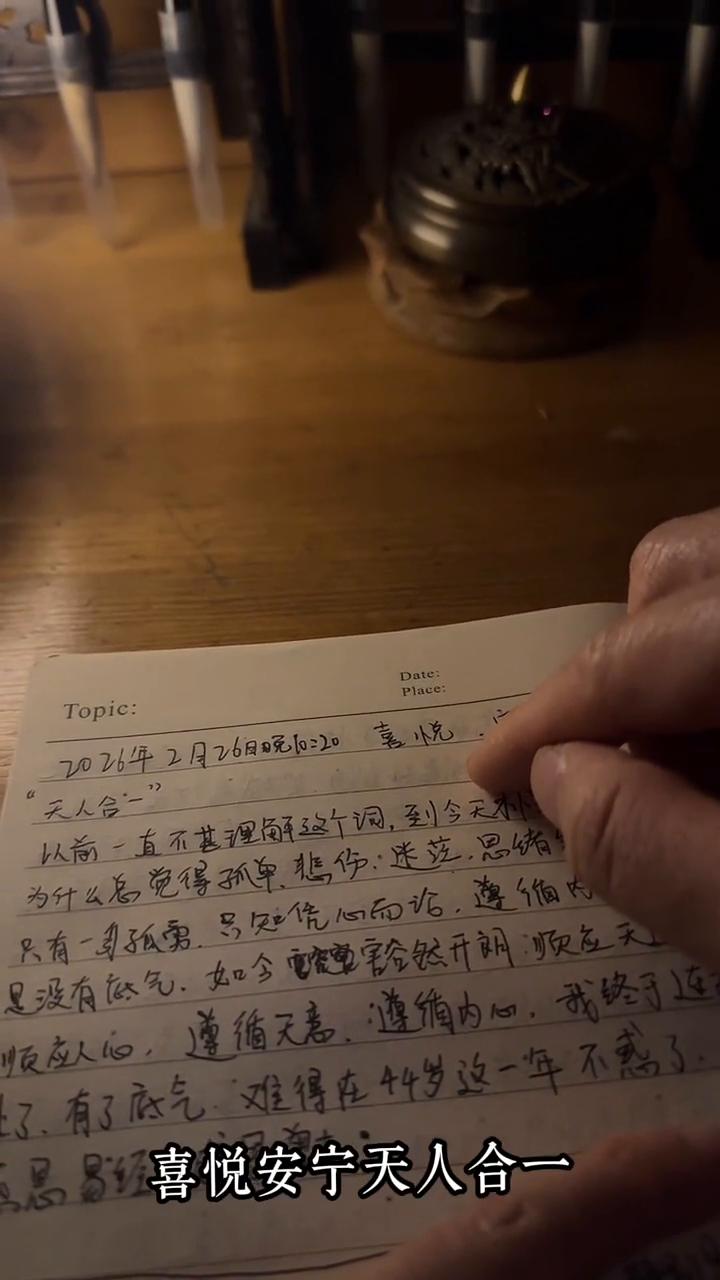 Topic:
Date:
Place:
2026年2月26日晚10:20 喜悦.
“天人合一”
以前一直不甚理解这个词,到今天才
为什么总觉得孤单、悲伤、迷茫.思绪
只有一身孤勇.只知凭心而论.遵循内
是没有底气.如今豁然开朗:顺应天
顺应人心,遵循天意.遵循内心,我终于连
了.有了底气.难得在44岁这一年不惑了.
易经
喜悦安宁天人合一